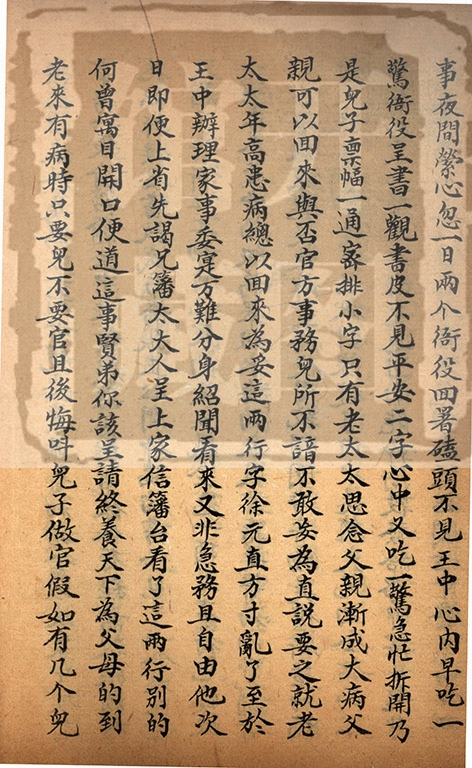 事夜間縈心忽一日兩个衙役回署磕頭不見王中心內早吃一
驚衙役呈書一觀書皮不見平安二字心中又吃一驚急忙拆開乃
是兒子稟幅一通密排小字只有老太太思念父親漸成大病父
親可以回來與否官方事務兒所不諳不敢妄為直説要之就老
太太年高患病總以回來為妥這兩行字徐元直方寸亂了至於
王中辦理家事委寔万難分身紹聞看來又非急務且自由他次
日即便上省先謁兄籓大大人呈上家信籓台看了這兩行別的
何曾寓目開口便道這事賢弟你該呈請終養天下為父母的到
老來有病時只要兒不要官且後悔呌兒子做官假如有几个兒